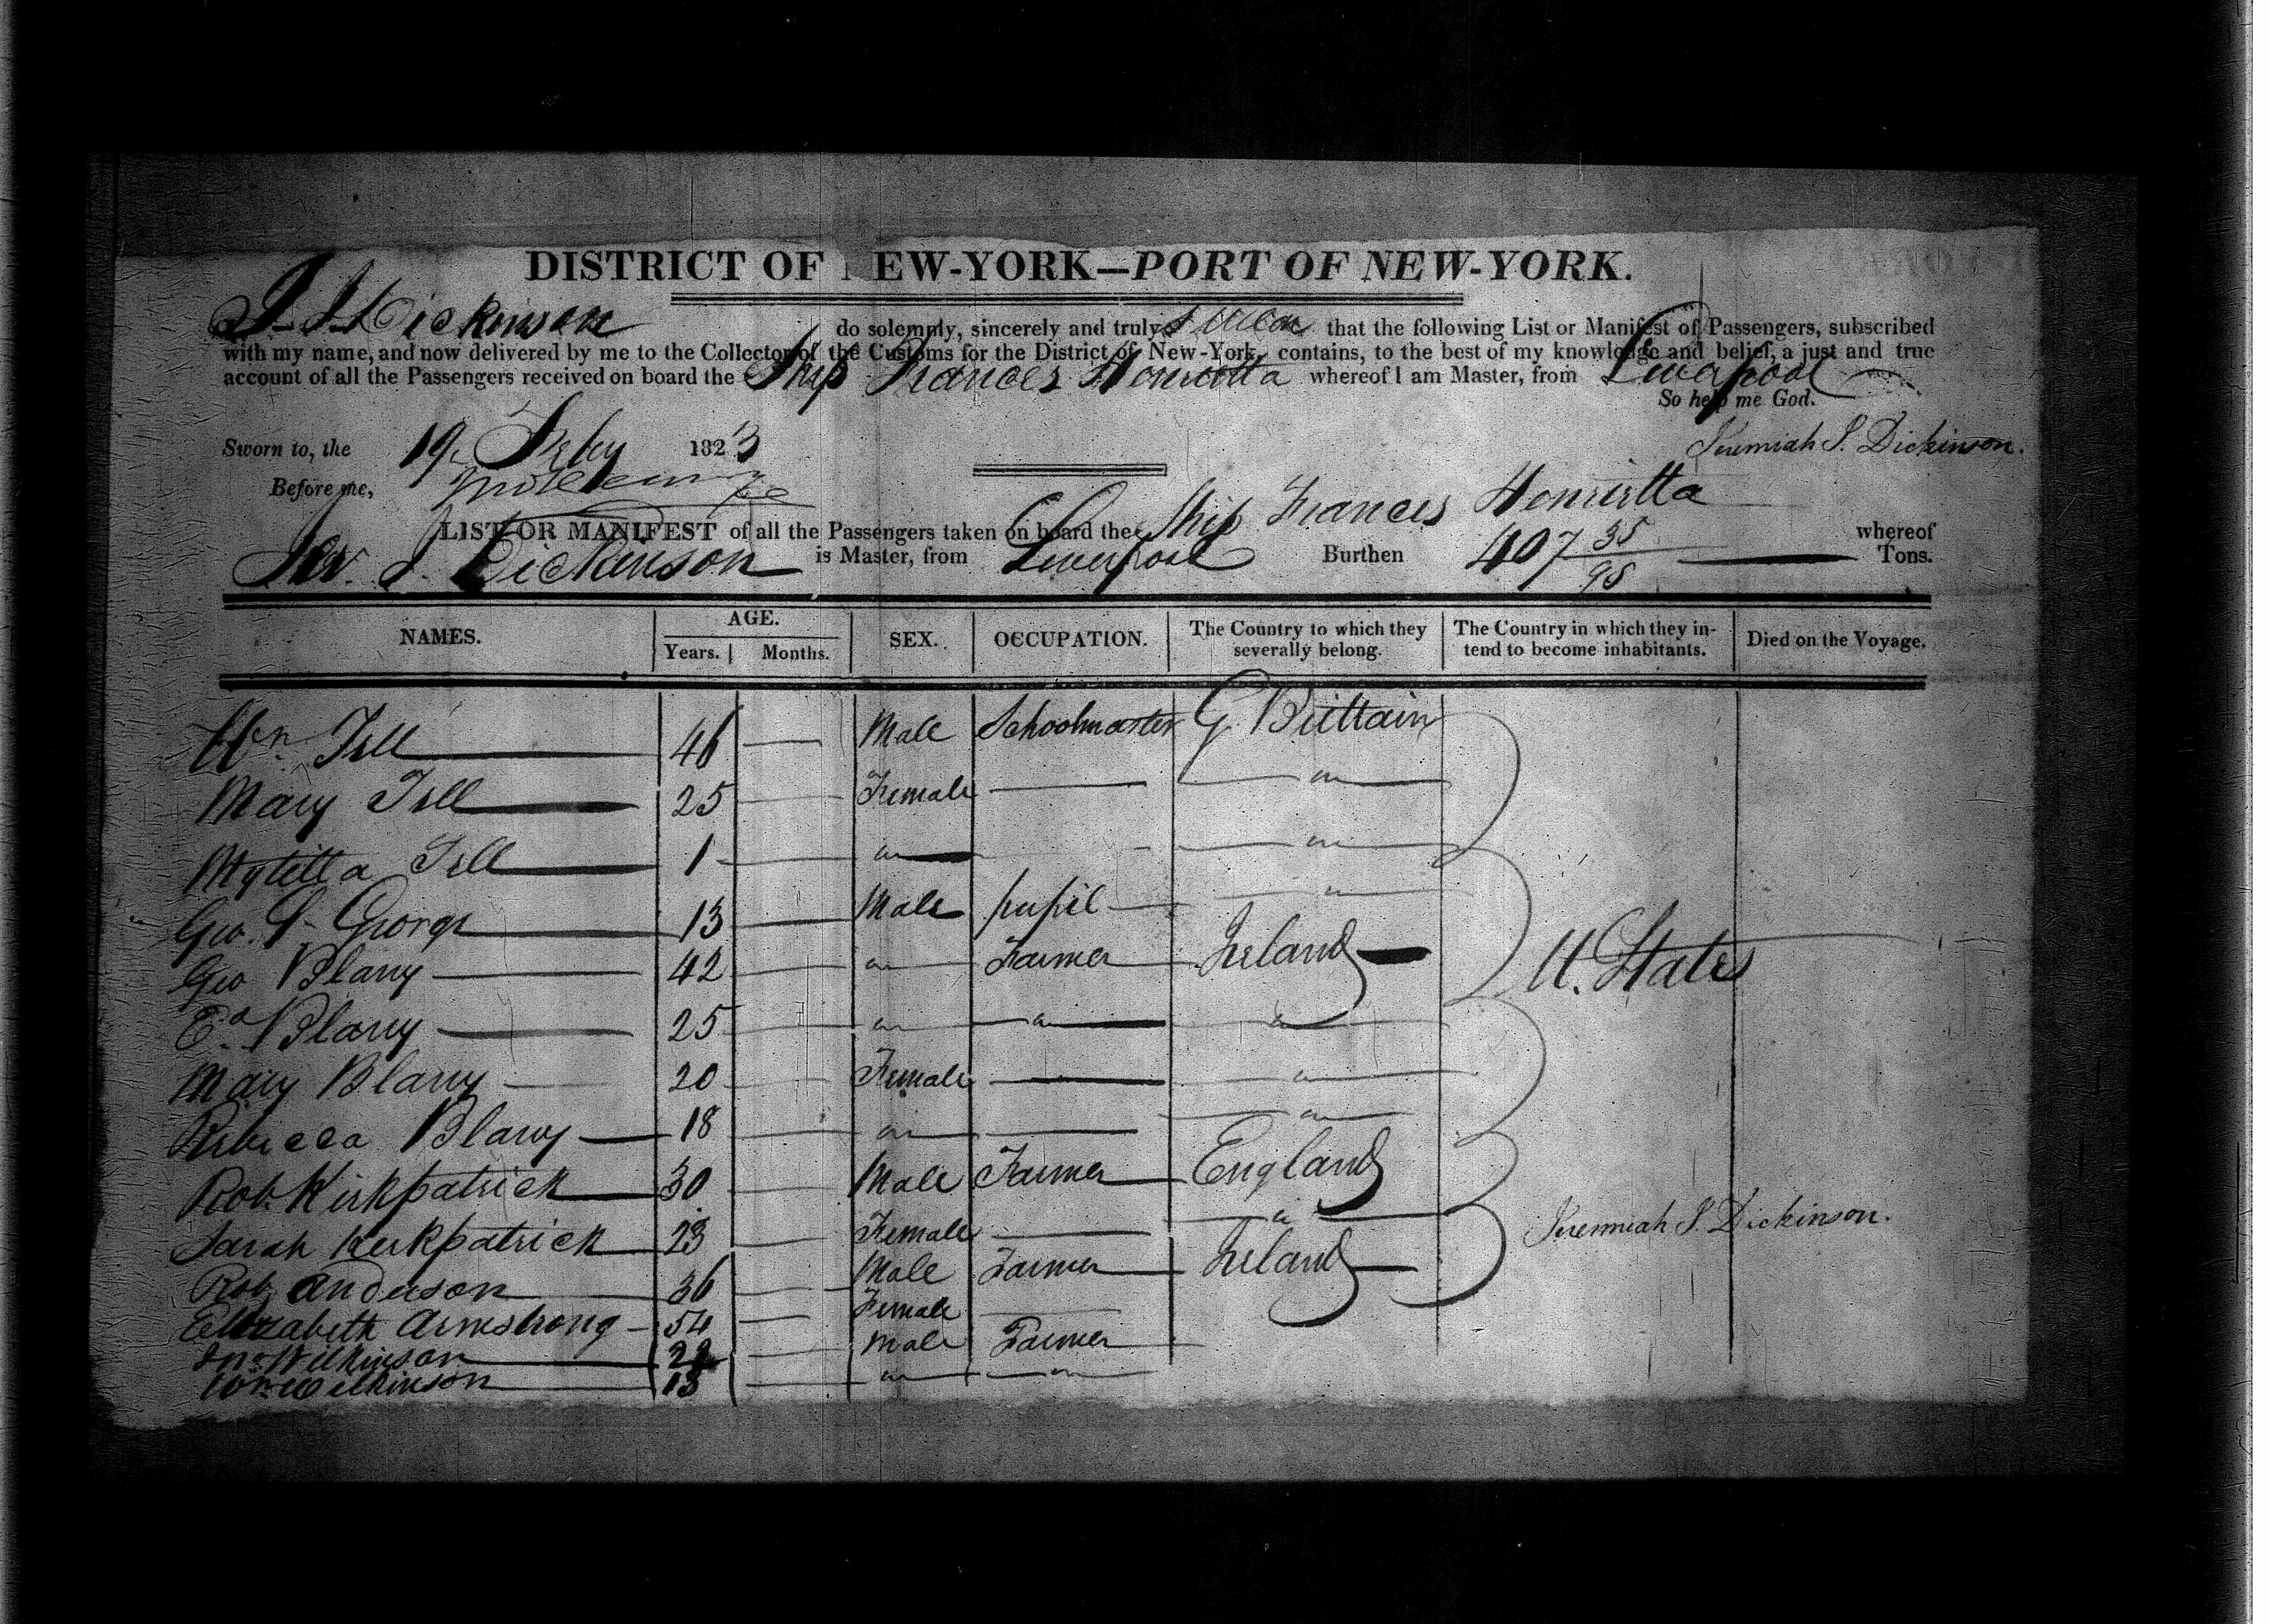 DISTRICT OF EW-YORK—PORT OF NEW-YORK.
I J. Dickinson do solemnly, sincerely and truly swear that the following List or Manifest of Passengers, subscribed
with my name, and now delivered by me to the Collector of the Customs for the District of New-York, contains, to the best of my knowledge and belief, a just and true
account of all the Passengers received on board the Ship Frances Henrietta whereof I am Master, from Liverpool
So help me God.
Sworn to, the 19 July 1823 Jeremiah S. Dickinson.
Before me,
LIST OR MANIFEST of all the Passengers taken on board the Ship Frances Henrietta whereof
Jer. S. Dickinson is Master, from Liverpool Burthen 407 35/95 Tons.
NAMES. AGE. Years. Months. SEX. OCCUPATION. The Country to which they severally belong. The Country in which they intend to become inhabitants. Died on the Voyage.
Wm Tell 46 Male Schoolmaster G. Brittain
Mary Tell 25 Female
Mytitta Tell 1
Geo. S. George 13 Male pupil
Geo Blany 42 Farmer Ireland U. States
Ed Blany 25
Mary Blany 20 Female
Rebicca Blany 18
Rob. Kirkpatrick 30 Male Farmer England
Sarah Kerkpatrick 23 Female Jeremiah S. Dickinson.
Rob Anderson 36 Male Farmer Ireland
Elizabeth Armstrong 54 Female
Jno Wilkinson 22 Male Farmer
Wm Wilkinson 13